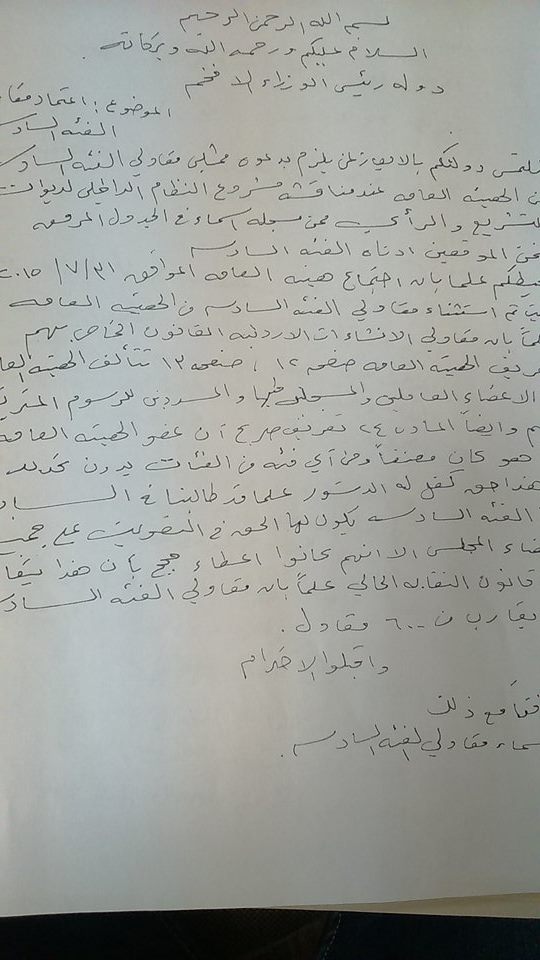 بسم الله الرحمن الرحيم
السلام عليكم ورحمة الله وبركاته
دولة رئيس الوزراء الافخم
الموضوع: اعتماد مقا
الفئه السادسه
نلتمس دولتكم بالايعاز لمن يلزم بدعوه ممثلي مقاولي الفئه السادسه
من الهيئه العامه عند مناقشة مشروع النظام الداخلي لديوان
التشريع والرأي ممن مسجله اسماء في الجدول المرفق
نحن الموقعين ادناه الفئه السادسه
نحيطكم علما بان اجتماع هيئه العامه الموافق ٣١ / ٧ / ٢٠١٥
حيث تم استثناء مقاولي الفئه السادسه من الهيئه العامه
علماً بان مقاولي الانشاءات الاردنيه القانون الخاص بهم
تعريف الهيئه العامه صفحه ١٢ ، صفحه ١٣ تتألف الهيئه العا
الاعضاء العاملين والمسجلين فيها والمسددين للرسوم المترتبه
وايضاً الماده ٢٤ تعريف صريح أن عضو الهيئه العامه
هو كان مصنفاً ومن أي فئه من الفئات بدون تحديد
هذا حق كفل له الدستور علما قد طالبنا في السابق
الفئه السادسه يكون لها الحق في التصويت على
اعضاء المجلس الا انهم كانوا اعطاء حجج بأن هذا
قانون النقابه الحالي علماً بان مقاولي الفئه السادسه
يقارب من ٦٠٠ مقاول .
واقبلوا الاحترام
مرفقاً مع ذلك
اسماء مقاولي الفئه السادسه .